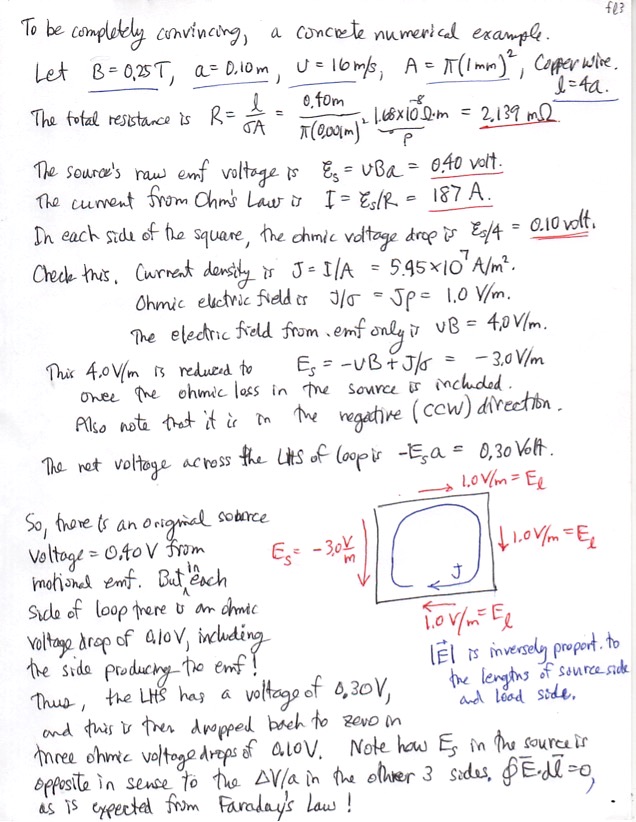 fl3
To be completely convincing, a concrete numerical example.
Let B = 0.25T, a = 0.10m, v = 16m/s, A = π(1mm)², Copper wire.
l = 4a.
The total resistance is R = l/σA = 0.40m/π(0.001m)² 1.68×10⁻⁸Ω·m = 2.139 mΩ
ρ
The source's raw emf voltage is ℰs = vBa = 0.40 volt.
The current from Ohm's Law is I = ℰs/R = 187 A.
In each side of the square, the ohmic voltage drop is ℰs/4 = 0.10 volt.
Check this. Current density is J = I/A = 5.95×10⁷ A/m².
Ohmic electric field is J/σ = Jρ = 1.0 V/m.
The electric field from emf only is vB = 4.0 V/m.
This 4.0 V/m is reduced to Es = -vB + J/σ = -3.0 V/m
once the ohmic loss in the source is included.
Also note that it is in the negative (CCW) direction.
The net voltage across the LHS of loop is -Es a = 0.30 Volt.
→ 1.0 V/m = El
So, there is an original source
voltage = 0.40V from
motional emf. But in each
side of loop there is an ohmic
voltage drop of 0.10V, including
the side producing the emf!
Thus, the LHS has a voltage of 0.30V,
and this is then dropped back to zero in
three ohmic voltage drops of 0.10V. Note how Es in the source is
opposite in sense to the ΔV/a in the other 3 sides, ∮E⃗·dl⃗ = 0,
as is expected from Faraday's Law!
Es = -3.0 V/m ↓
↓ 1.0 V/m = El
J
← 1.0 V/m = El
|E⃗| is inversely proport. to
the lengths of source side
and load side.